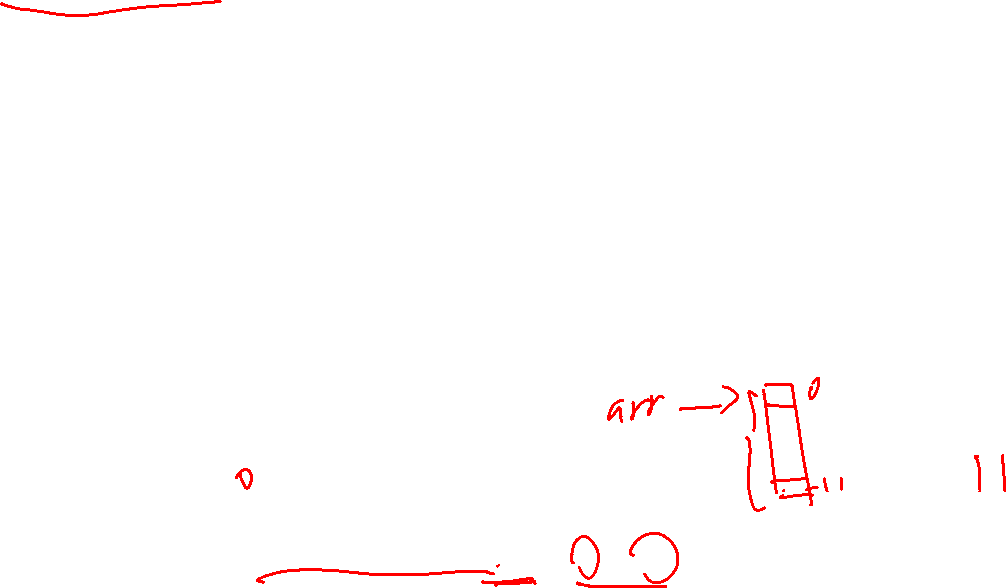 arr → 0
0 11 11
0 0